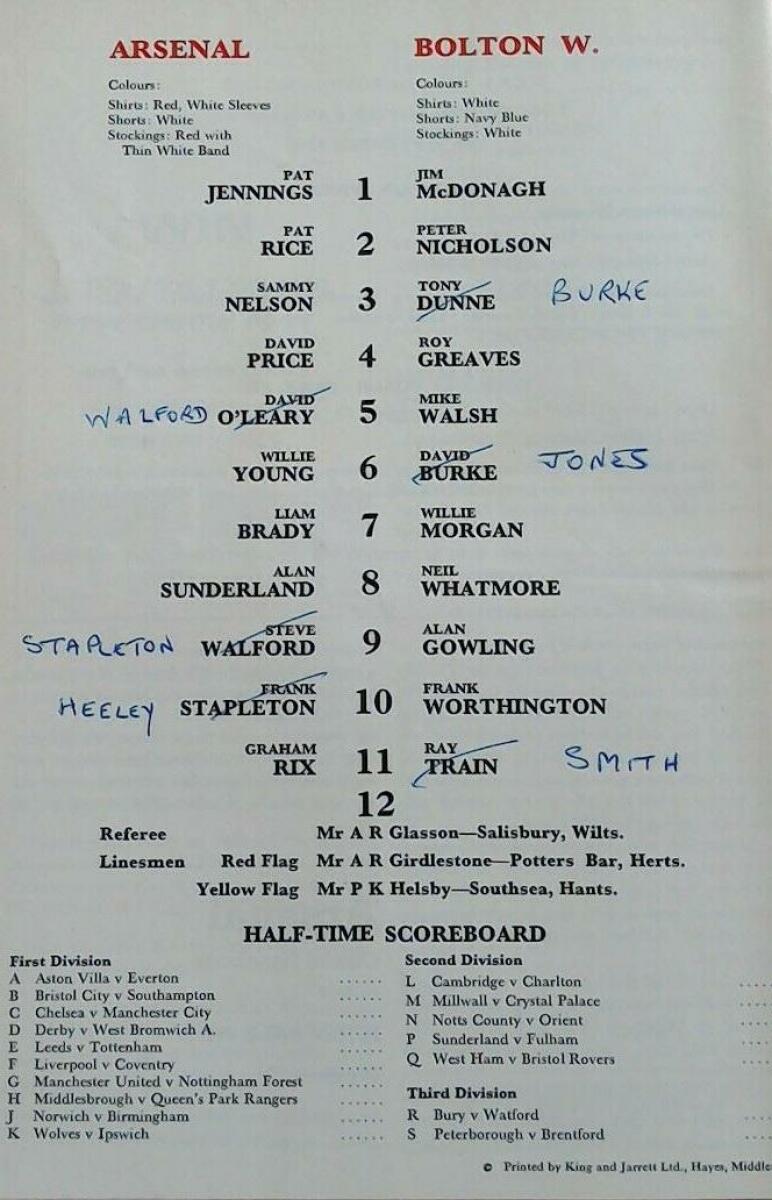 ARSENAL
Colours:
Shirts: Red, White Sleeves
Shorts: White
Stockings: Red with
Thin White Band
BOLTON W.
Colours:
Shirts: White
Shorts: Navy Blue
Stockings: White
PAT JENNINGS 1 JIM McDONAGH
PAT RICE 2 PETER NICHOLSON
SAMMY NELSON 3 TONY DUNNE BURKE
DAVID PRICE 4 ROY GREAVES
WALFORD DAVID O'LEARY 5 MIKE WALSH
WILLIE YOUNG 6 DAVID BURKE JONES
LIAM BRADY 7 WILLIE MORGAN
ALAN SUNDERLAND 8 NEIL WHATMORE
STAPLETON STEVE WALFORD 9 ALAN GOWLING
HEELEY FRANK STAPLETON 10 FRANK WORTHINGTON
GRAHAM RIX 11 RAY TRAIN SMITH
12
Referee Mr A R Glasson—Salisbury, Wilts.
Linesmen Red Flag Mr A R Girdlestone—Potters Bar, Herts.
Yellow Flag Mr P K Helsby—Southsea, Hants.
HALF-TIME SCOREBOARD
First Division
A Aston Villa v Everton ......
B Bristol City v Southampton ......
C Chelsea v Manchester City ......
D Derby v West Bromwich A. ......
E Leeds v Tottenham ......
F Liverpool v Coventry ......
G Manchester United v Nottingham Forest ......
H Middlesbrough v Queen's Park Rangers ......
J Norwich v Birmingham ......
K Wolves v Ipswich ......
Second Division
L Cambridge v Charlton ....
M Millwall v Crystal Palace ....
N Notts County v Orient ....
P Sunderland v Fulham ....
Q West Ham v Bristol Rovers ....
Third Division
R Bury v Watford ....
S Peterborough v Brentford ....
© Printed by King and Jarrett Ltd., Hayes, Middle